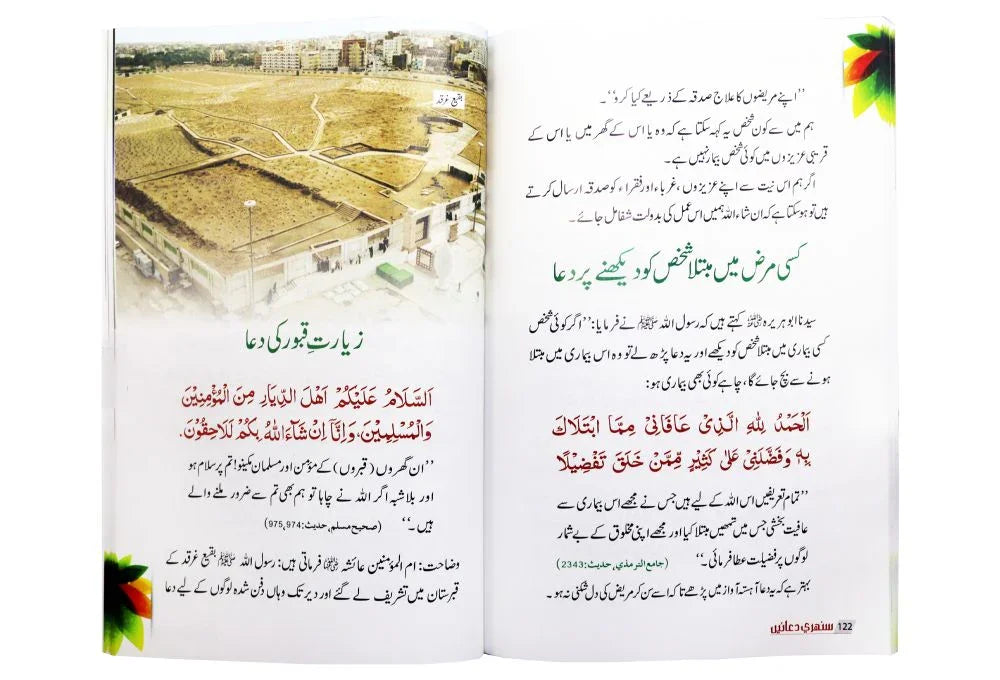 ’’اپنے مریضوں کا علاج صدقہ کے ذریعے کیا کرو‘‘۔
ہم میں سے کون شخص یہ کہہ سکتا ہے کہ وہ یا اس کے گھر میں یا اس کے
قریبی عزیزوں میں کوئی شخص بیمار نہیں ہے۔
اگر ہم اس نیت سے اپنے عزیزوں، غرباء اور فقراء کو صدقہ ارسال کرتے
ہیں تو ہو سکتا ہے کہ ان شاء اللہ ہمیں اس عمل کی بدولت شفا مل جائے۔
کسی مرض میں مبتلا شخص کو دیکھنے پر دعا
سیدنا ابو ہریرہ رضی اللہ عنہ کہتے ہیں کہ رسول اللہ ﷺ نے فرمایا: ’’اگر کوئی شخص
کسی بیماری میں مبتلا شخص کو دیکھے اور یہ دعا پڑھ لے تو وہ اس بیماری میں مبتلا
ہونے سے بچ جائے گا، چاہے کوئی بھی بیماری ہو:
اَلْحَمْدُ لِلّٰهِ الَّذِیْ عَافَانِیْ مِمَّا ابْتَلَاكَ
بِهٖ وَفَضَّلَنِیْ عَلٰی كَثِیْرٍ مِّمَّنْ خَلَقَ تَفْضِیْلًا
’’تمام تعریفیں اس اللہ کے لیے ہیں جس نے مجھے اس بیماری سے
عافیت بخشی جس میں تمھیں مبتلا کیا اور مجھے اپنی مخلوق کے بے شمار
لوگوں پر فضیلت عطا فرمائی۔‘‘ (جامع الترمذي، حديث: 2343)
بہتر ہے کہ یہ دعا آہستہ آواز میں پڑھے تا کہ اسے سن کر مریض کی دل شکنی نہ ہو۔
122 سنهری دعائیں
بقیع غرقد
زیارتِ قبور کی دعا
اَلسَّلَامُ عَلَیْكُمْ اَهْلَ الدِّیَارِ مِنَ الْمُؤْمِنِیْنَ
وَالْمُسْلِمِیْنَ، وَاِنَّا اِنْ شَآءَ اللّٰهُ بِكُمْ لَلَاحِقُوْنَ.
’’ان گھروں (قبروں) کے مؤمن اور مسلمان مکینو! تم پر سلام ہو
اور بلاشبہ اگر اللہ نے چاہا تو ہم بھی تم سے ضرور ملنے والے
ہیں۔‘‘ (صحيح مسلم، حديث: 975,974)
وضاحت: ام المؤمنین عائشہ رضی اللہ عنہا فرماتی ہیں: رسول اللہ ﷺ بقیع غرقد کے
قبرستان میں تشریف لے گئے اور دیر تک وہاں دفن شدہ لوگوں کے لیے دعا